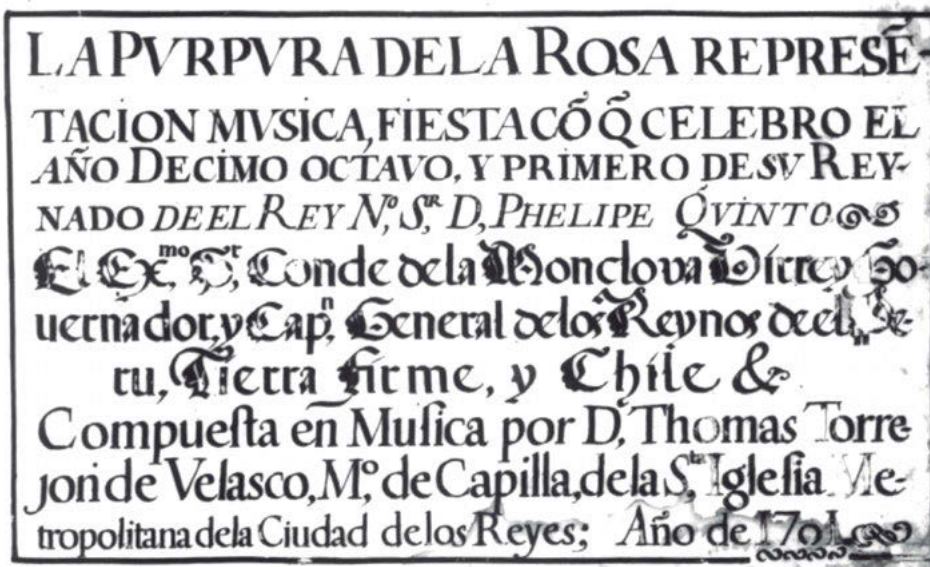 LA PVRPVRA DE LA ROSA REPRESẼ-
TACION MVSICA, FIESTA CÕ Q̃ CELEBRO EL
AÑO DECIMO OCTAVO, Y PRIMERO DE SV REY-
NADO DE EL REY Nº, S.R D, PHELIPE QVINTO
El Exmo, Sr, Conde dela Monclova Virrey Go-
uernador, y Capn, General delos Reynos de el Pe-
ru, Tierra Firme, y Chile &
Compuesta en Musica por D, Thomas Torre-
jon de Velasco, Mº, de Capilla, de la Sta, Iglesia Me-
tropolitana dela Ciudad delos Reyes; Año de 1701